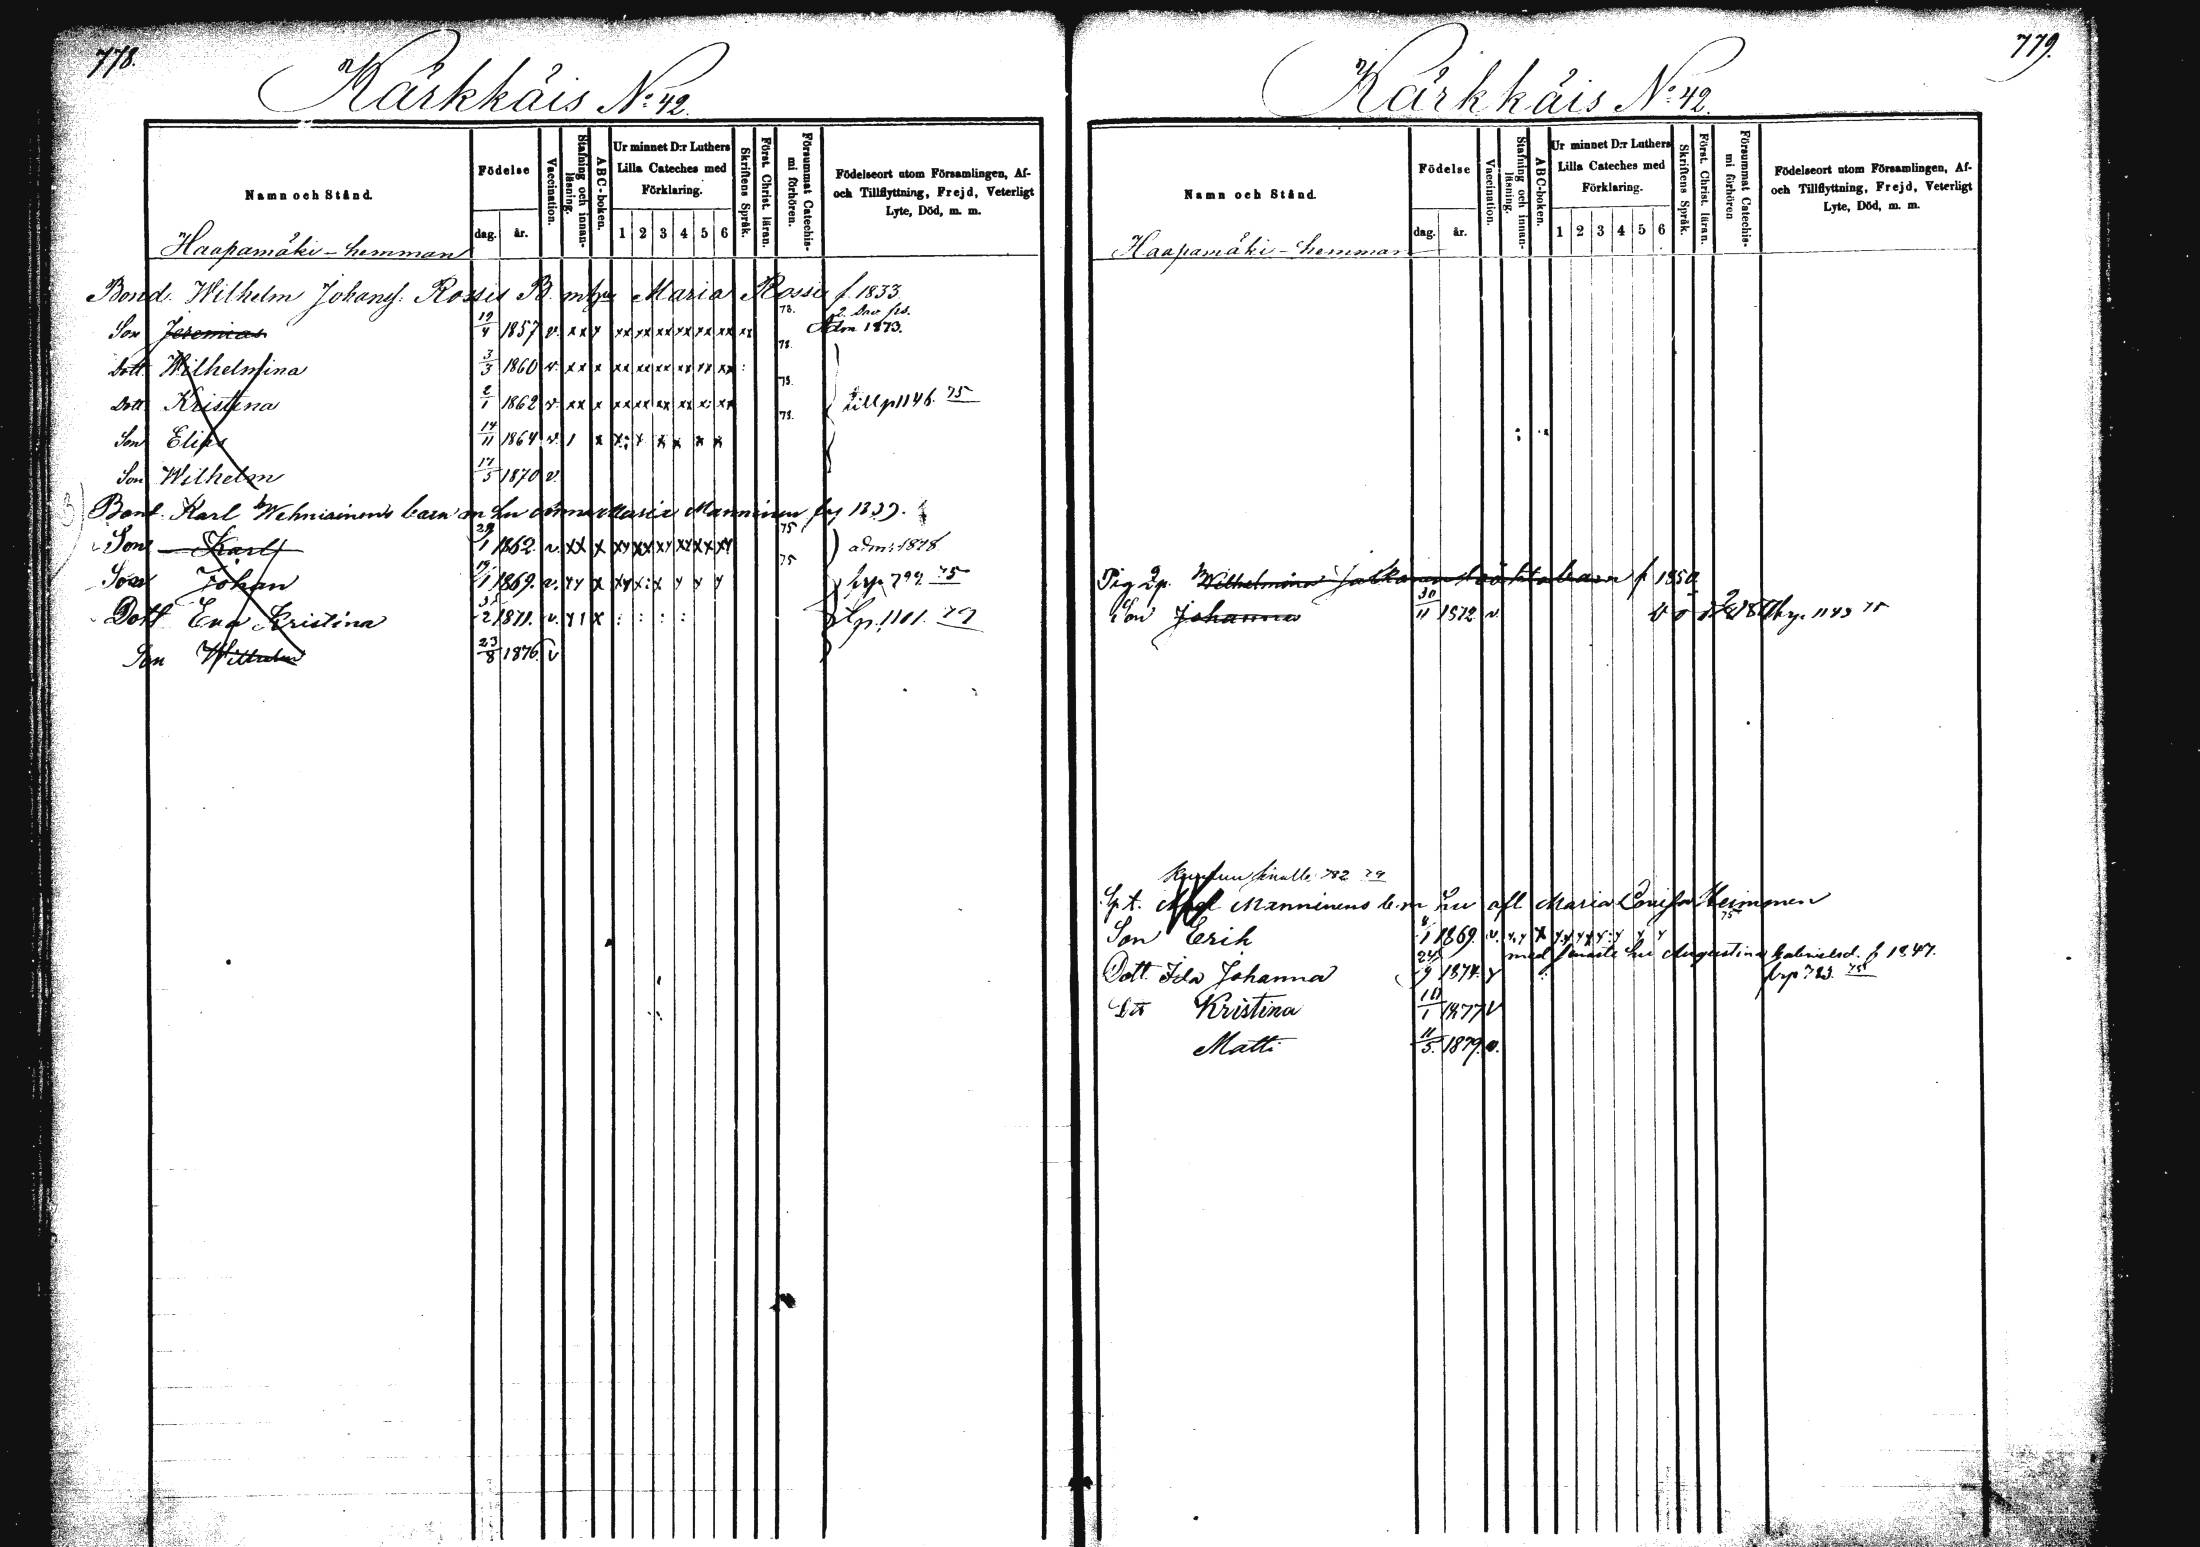 778.
Kärkkäis No: 42.
Namn och Stånd.
Födelse
dag. år.
Vaccination.
Stafning och innan-läsning.
ABC-boken.
Ur minnet D:r Luthers Lilla Cateches med Förklaring.
1 2 3 4 5 6
Skriftens Språk.
Först. Christ. läran.
Försummat Catechis-mi förhören.
Födelseort utom Församlingen, Af- och Tillflyttning, Frejd, Veterligt Lyte, Död, m. m.
Haapamäki - hemman
Bond. Wilhelm Johans. Rossis B. m Maria Rossi f. 1833
Son Jeremias 19/4 1857 v. Adm 1873.
Dott. Wilhelmina 3/3 1860 v.
Dott. Kristina 2/1 1862 v. till p 1146. 75
Son Elias 14/11 1864 v.
Son Wilhelm 17/5 1870 v.
Bond. Karl Wehniainens barn m hu Anna Maria Manninen 1839.
Son Karl 1862. v. adm. 1878
Son Johan 1869. v. 75
Dott Eva Kristina 1871. v. p. 1101. 79
Son Wilhelm 23/8 1876. v
779.
Kärkkäis No: 42.
Namn och Stånd.
Födelse
dag. år.
Vaccination.
Stafning och innan-läsning.
ABC-boken.
Ur minnet D:r Luthers Lilla Cateches med Förklaring.
1 2 3 4 5 6
Skriftens Språk.
Först. Christ. läran.
Försummat Catechis-mi förhören
Födelseort utom Församlingen, Af- och Tillflyttning, Frejd, Veterligt Lyte, Död, m. m.
Haapamäki - hemman
Pig Wilhelmina Jalkanen oäkta barn f 1850
Son Johannes 30/11 1872 v. 1143 75
782 79
Manninens b. m hu afl Maria Lovisa Heimonen
Son Erik 1869. v.
med hu Augustina Gabrielsd. f 1847.
Dott. Ida Johanna 24/9 1874. v 783. 75
Dtr Kristina 10/1 1877 v
Matti 11/5. 1879. v.